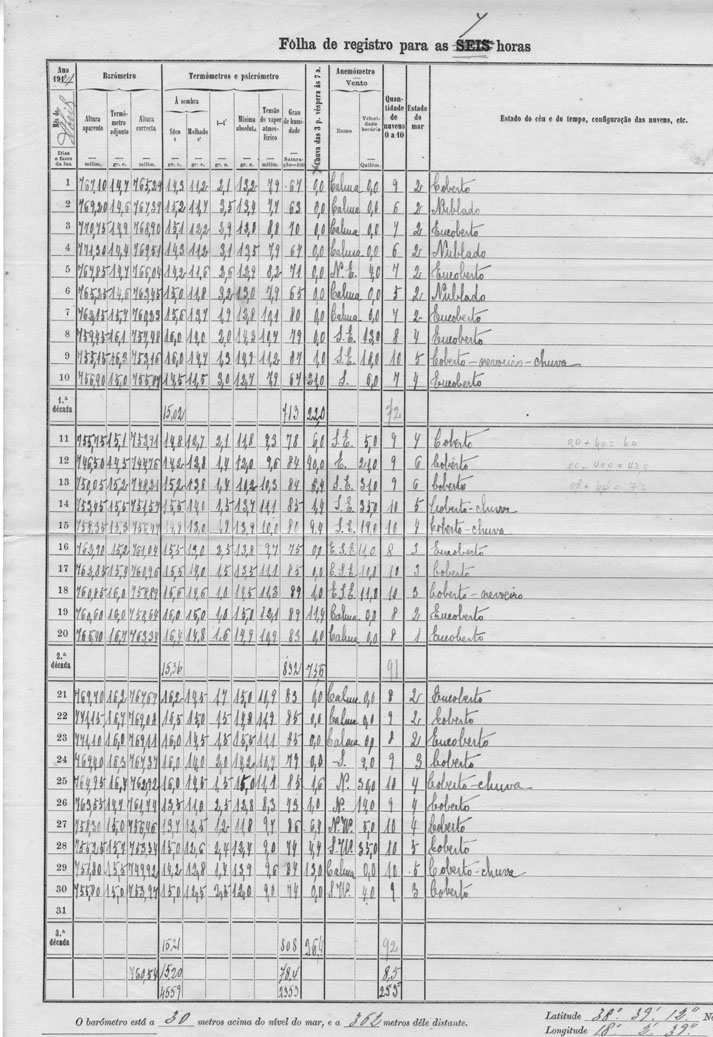 7
Fôlha de registro para as SEIS horas
Ano 1914 Barómetro Termómetros e psicrómetro Chuva das 3 p. véspera ás 7 a. Anemómetro Quantidade de nuvens 0 a 10 Estado do mar Estado do céu e do tempo, configuração das nuvens, etc.
Mês de Dias e fases da lua
Altura aparente Termómetro adjunto Altura correcta À sombra t—t' Mínima absoluta Tensão do vapor atmosférico Grau de humidade Vento
Sêco t Molhado t' Rumo Velocidade horária
milím. gr. c. milím. gr. c. gr. c. gr. c. gr. c. milím. Quilóm.
1 767,10 14,7 765,29 14,3 11,2 2,1 13,2 7,9 67 0,0 Calma 0,0 9 2 Coberto
2 769,20 14,6 767,39 15,2 11,7 3,5 13,4 7,9 63 0,0 Calma 0,0 6 2 Nublado
3 770,75 14,9 768,90 15,1 12,2 2,9 13,0 8,8 70 0,0 Calma 0,0 7 2 Encoberto
4 771,30 14,4 769,51 14,3 11,2 3,1 13,5 7,9 67 0,0 Calma 0,0 6 2 Nublado
5 767,85 14,7 766,04 14,2 11,6 2,6 12,9 8,2 71 0,0 N.E. 4,0 7 2 Encoberto
6 765,25 14,6 763,45 15,0 11,8 3,2 13,0 7,9 65 0,0 Calma 0,0 5 2 Nublado
7 15,7 15,6 13,7 1,9 13,8 10,1 80 0,0 Calma 0,0 7 2 Encoberto
8 16,1 16,0 14,0 2,0 14,3 10,7 79 0,0 S.E. 13,0 8 4 Encoberto
9 755,15 16,3 753,16 16,0 14,7 1,3 14,9 11,2 87 1,0 S.E. 18,0 10 5 Coberto-nevoeiro-chuva
10 756,90 15,0 755,04 14,5 11,5 3,0 12,7 7,9 67 21,0 S. 6,0 7 4 Encoberto
1.ª década 15,02 713 22,0 72
11 755,75 15,1 753,91 14,8 12,7 2,1 11,8 9,3 78 6,0 S.E. 5,0 9 4 Coberto
12 746,50 14,5 744,76 14,2 12,8 1,4 12,0 9,6 84 40,0 E. 24,0 9 6 Coberto
13 750,05 15,2 748,21 15,2 13,6 10,2 10,3 84 S.E. 31,0 9 6 Coberto
14 753,45 15,5 751,57 15,5 14,0 1,5 13,7 11,1 85 1,4 S.E. 35,0 10 5 Coberto-chuva
15 758,35 15,3 756,47 14,9 13,0 1,9 13,9 10,0 80 9,4 S.E. 19,0 10 4 Coberto-chuva
16 15,2 761,04 15,5 13,0 2,5 13,8 9,7 75 0,0 E.S.E. 11,0 8 3 Encoberto
17 15,9 760,96 15,5 14,0 1,5 13,5 11,1 85 0,0 E.S.E. 10,8 10 3 Coberto
18 760,85 16,0 758,89 15,6 14,6 1,0 14,5 89 1,0 E.S.E. 11,8 10 3 Coberto-nevoeiro
19 16,0 758,64 16,0 15,0 1,0 15,0 12,1 89 11,4 Calma 0,0 8 2 Encoberto
20 16,7 763,34 16,4 14,8 1,6 14,9 83 Calma 0,0 8 1 Encoberto
2.ª década 15,36 832 91
21 769,70 16,2 767,69 16,2 14,5 1,7 15,0 11,9 83 0,0 Calma 0,0 8 2 Encoberto
22 771,15 16,7 769,08 16,5 15,0 1,5 14,8 11,9 85 0,0 Calma 0,0 9 2 Coberto
23 771,10 16,0 769,11 16,0 14,5 1,5 15,5 11,1 85 0,0 Calma 0,0 8 2 Encoberto
24 769,40 16,3 767,37 16,0 14,0 2,0 14,2 10,7 79 0,0 S. 9,0 9 3 Coberto
25 764,95 16,7 762,92 16,0 14,5 1,5 15,0 11,1 85 1,6 N. 36,0 10 4 Coberto-chuva
26 763,55 14,7 761,74 13,5 11,0 2,5 12,8 8,3 73 1,0 N. 14,0 9 4 Coberto
27 758,30 15,0 756,46 13,7 12,5 1,2 11,8 9,7 86 6,4 N.W. 5,0 10 4 Coberto
28 755,25 15,7 753,34 15,0 12,6 2,4 12,7 9,0 74 4,4 S.W. 35,0 10 5 Coberto
29 751,80 15,5 749,92 14,2 12,8 1,4 13,9 9,6 84 13,0 Calma 0,0 10 5 Coberto-chuva
30 755,80 15,0 753,97 15,0 12,5 2,5 12,0 9,0 74 0,0 S.W. 4,0 9 3 Coberto
31
3.ª década 15,21 808 26,4 92
760,54 15,20 78,4 8,5
4559 2353 255
O barómetro está a 30 metros acima do nível do mar, e a 362 metros dêle distante.
Latitude 38° 39' 12"
Longitude 18° 2' 39"